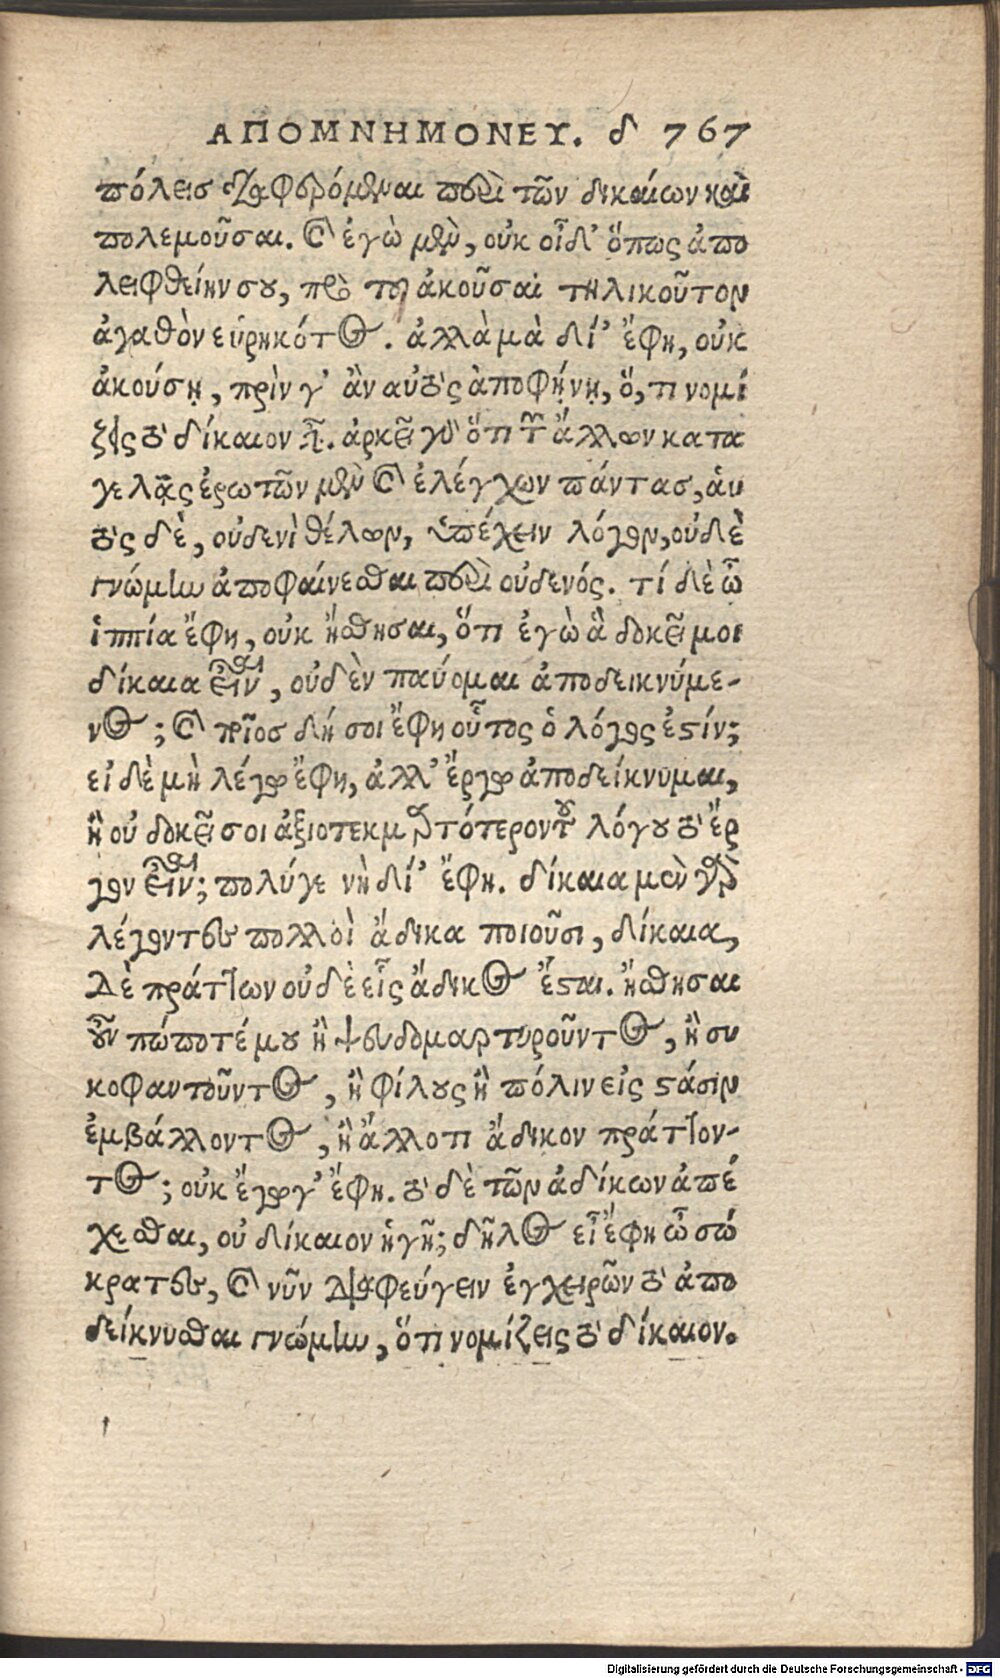 ΑΠΟΜΝΗΜΟΝΕΥ. δ 767
πόλεισ διαφερόμεναι περὶ τῶν δικαίων καὶ
πολεμοῦσαι. καὶ ἐγὼ μὲν, οὐκ οἶδ’ ὅπως ἀπο
λειφθείην σου, πρὸ τοῦ ἀκοῦσαι τηλικοῦτον
ἀγαθὸν εὑρηκότος. ἀλλὰ μὰ δί’ ἔφη, οὐκ
ἀκούσῃ, πρίν γ’ ἂν αὐτὸς ἀποφήνῃ, ὅ,τι νομί
ζεις τὸ δίκαιον εἶναι. ἀρκεῖ γὰρ ὅτι τῶν ἄλλων κατα
γελᾷς ἐρωτῶν μὲν καὶ ἐλέγχων πάντασ, αὐ
τὸς δὲ, οὐδενὶ θέλων, ὑπέχειν λόγον, οὐδὲ
γνώμην ἀποφαίνεσθαι περὶ οὐδενός. τί δὲ ὦ
ἱππία ἔφη, οὐκ ᾔσθησαι, ὅτι ἐγὼ ἃ δοκεῖ μοι
δίκαια εἶναι, οὐδὲν παύομαι ἀποδεικνύμε-
νος; καὶ ποῖοσ δή σοι ἔφη οὗτος ὁ λόγος ἐστίν;
εἰ δὲ μὴ λόγῳ ἔφη, ἀλλ’ ἔργῳ ἀποδείκνυμαι,
ἢ οὐ δοκεῖ σοι ἀξιοτεκμαρτότερον τοῦ λόγου τὸ ἔρ
γον εἶναι; πολύγε νὴ δί’ ἔφη. δίκαια μὲν γὰρ
λέγοντες πολλοὶ ἄδικα ποιοῦσι, δίκαια,
δὲ πράττων οὐδὲ εἷς ἄδικος ἔσται. ᾔσθησαι
οὖν πώποτέ μου ἢ ψευδομαρτυροῦντος, ἢ συ
κοφαντοῦντος, ἢ φίλους ἢ πόλιν εἰς στάσιν
ἐμβάλλοντος, ἢ ἄλλοτι ἄδικον πράττον-
τος; οὐκ ἔγωγ’ ἔφη. τὸ δὲ τῶν ἀδίκων ἀπέ
χεσθαι, οὐ δίκαιον ἡγῇ; δῆλος εἶ ἔφη ὦ σώ
κρατες, καὶ νῦν διαφεύγειν ἐγχειρῶν τὸ ἀπο
δείκνυσθαι γνώμην, ὅτι νομίζεις τὸ δίκαιον.
Digitalisierung gefördert durch die Deutsche Forschungsgemeinschaft - DFG